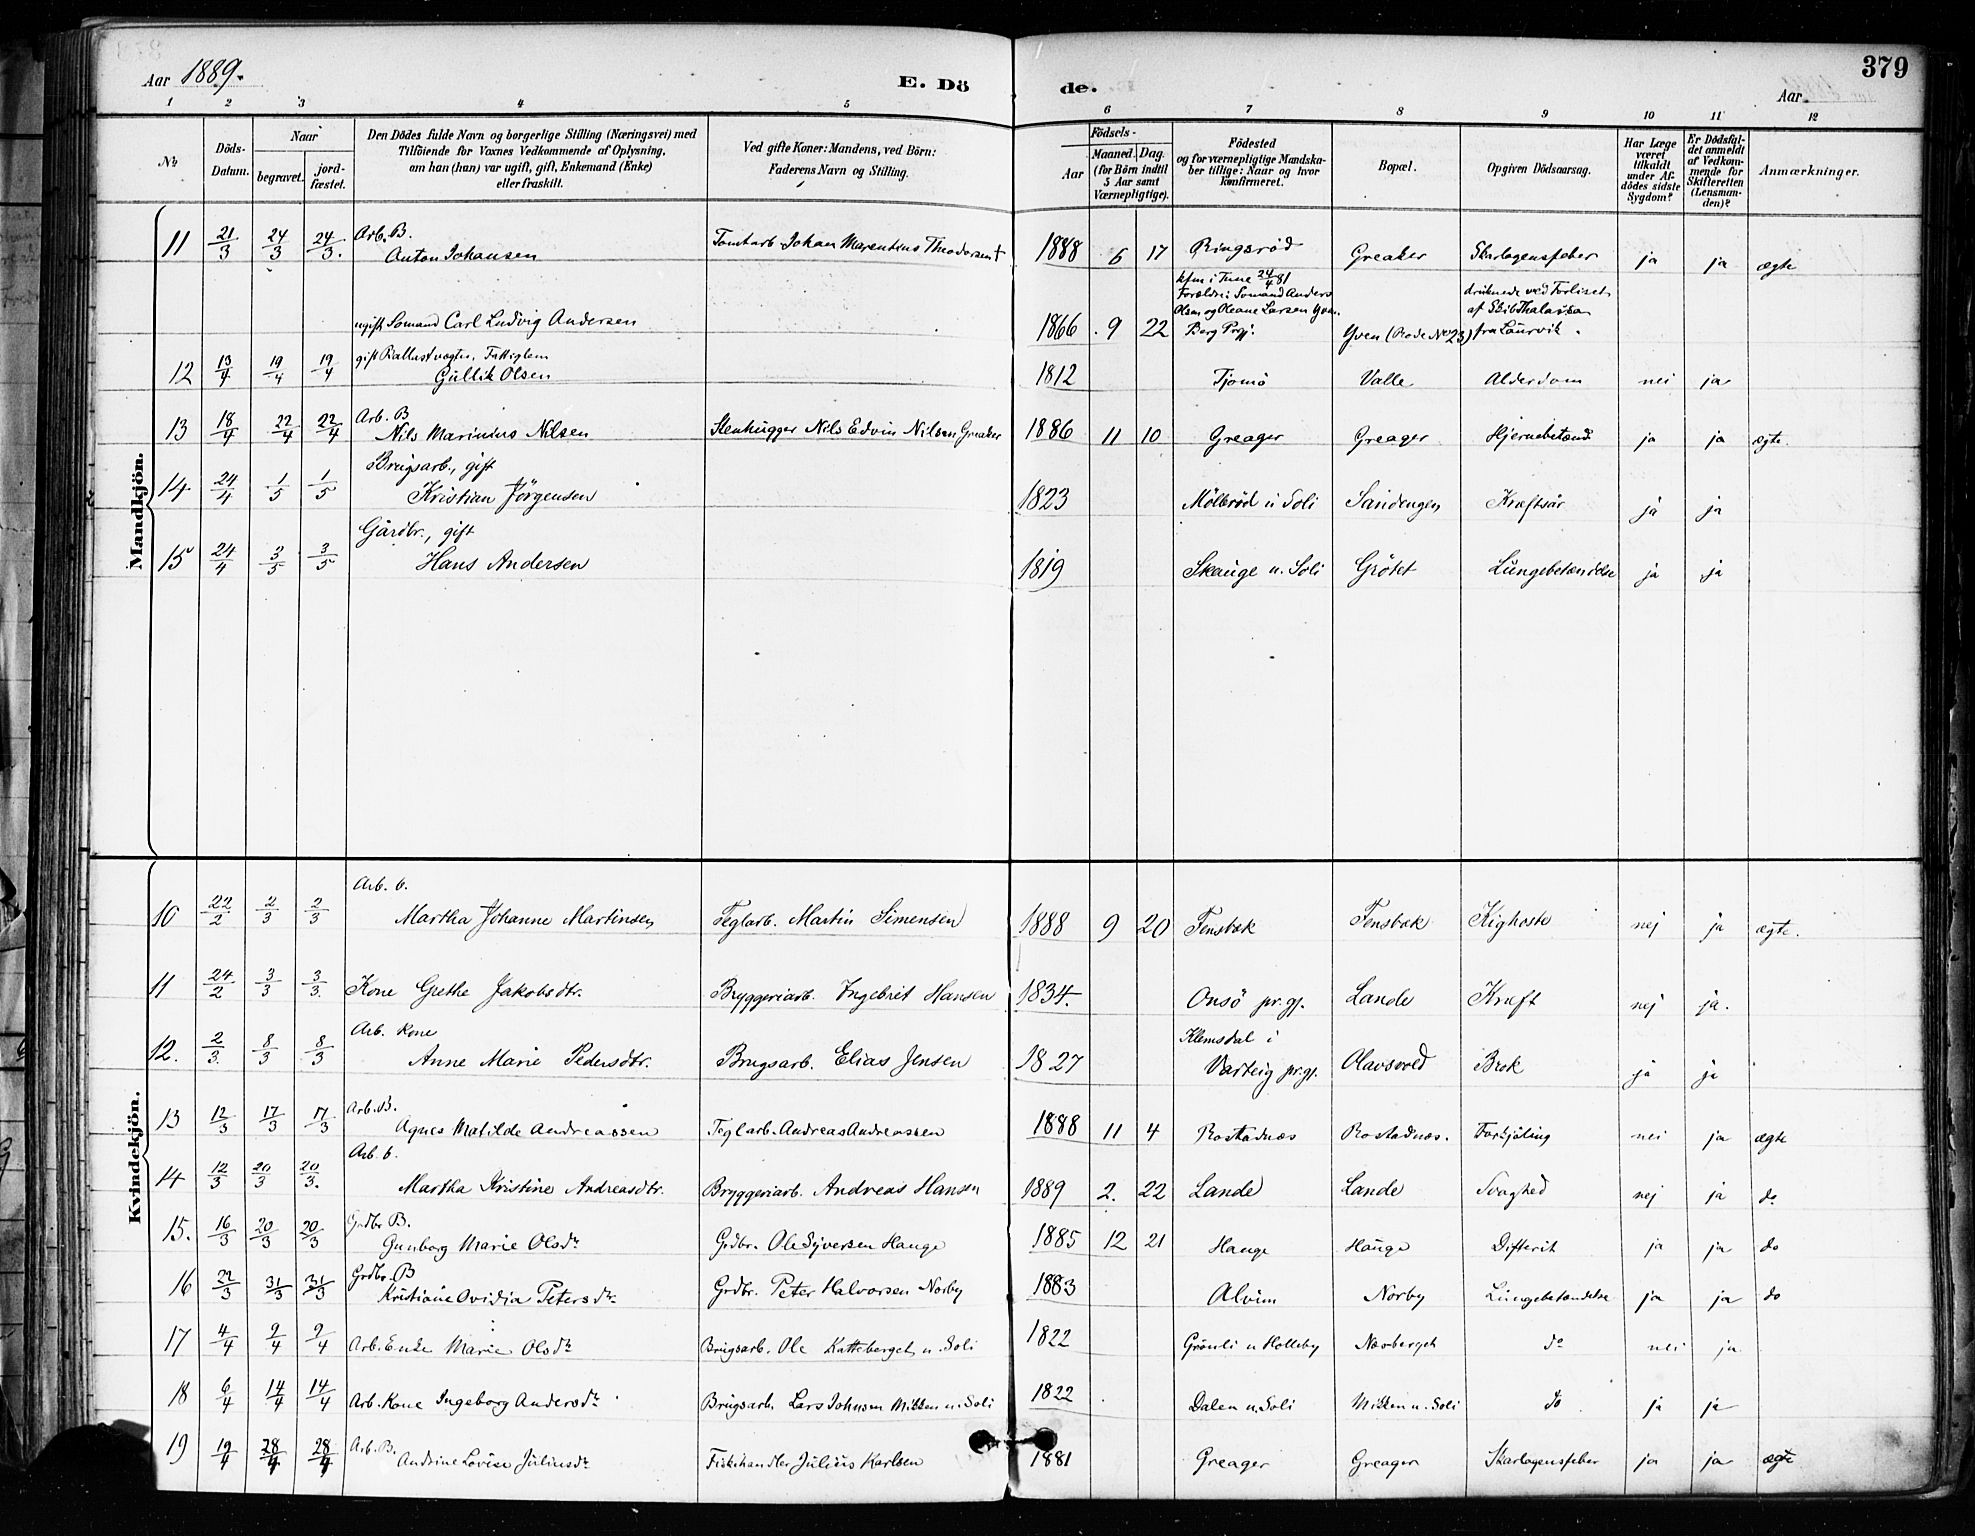 379
Aar 1889.
E. Dö de.
Aar
1 2 3 4 5 6 7 8 9 10 11 12
No
Döds-Datum.
Naar
begravet.
jord-fæstet.
Den Dödes fulde Navn og borgerlige Stilling (Næringsvei) med
Tilföiende for Voxnes Vedkommende af Oplysning,
om han (hun) var ugift, gift, Enkemand (Enke)
eller fraskilt.
Ved gifte Koner: Mandens, ved Börn:
Faderens Navn og Stilling.
Födsels-
Aar
Maaned. Dag.
(for Börn indtil
5 Aar samt
Værnepligtige).
Födested
og for værnepligtige Mandska-
ber tillige: Naar og hvor
konfirmeret.
Bopæl.
Opgiven Dödsaarsag.
Har Læge
været
tilkaldt
under Af-
dödes sidste
Sygdom?
Er Dödsfal-
det anmeldt
af Vedkom-
mende for
Skifteretten
(Lensman-
den)?
Anmærkninger.
Mandkjön.
11 21/3 24/3 24/3. Arb. B. Anton Johansen Tomtarb Johan Marentius Theodorsen † 1888 6 17 Ringsrød Greaker Skarlagensfeber ja ja ægte
ugift Sømand Carl Ludvig Andersen 1866 9 22 kfm i Tune 24/4 81 Forældre: Sømand Anders Olsen og Oleane Larsen Yven. Berg Prgj. Yven (Rode No 23) druknede ved Forliset af Skib Thalassa fra Laurvik.
12 13/4 19/4 19/4 gift Ballastvægter, Fattiglem Gullik Olsen 1812 Tjømö Valle Alderdom nei ja
13 18/4 22/4 22/4 Arb. B Nils Marinius Nilsen Stenhugger Nils Edvin Nilsen Greaker 1886 11 10 Greager Greager Hjernebetænd. ja ja ægte.
14 24/4 1/5 1/5 Brugsarb., gift Kristian Jörgensen 1823 Mölbröd u Soli Sandengen Kræftsår ja ja
15 24/4 3/5 3/5 Gårdbr., gift Hans Andersen 1819 Skauge u. Soli Grötet Lungebetændelse ja ja
Kvindekjön.
10 22/2 2/3 2/3 Arb. b. Martha Johanne Martinsen Teglarb. Martin Simensen 1888 9 20 Fensbæk Fensbæk Kighoste nej ja ægte.
11 24/2 3/3 3/3 Kone Grethe Jakobsdtr. Bryggeriarb. Ingebret Hansen 1834. Onsö pr.gj. Lande Kræft nej ja.
12. 2/3 8/3 8/3 Arb. Kone Anne Marie Pedersdtr. Brugsarb. Elias Jensen 1827 Klemsdal i Varteig pr.gj. Olavsvold Brok ja ja
13 12/3 17/3 17/3 Arb. B. Agnes Matilde Andreassen Teglarb. Andreas Andreassen 1888 11 4 Rostadnæs Rostadnæs. Forkjöling nei ja ægte
14 12/3 20/3 20/3. Arb. b. Martha Kristine Andreasdtr. Bryggeriarb. Andreas Hansen 1889 2. 22 Lande Lande Svaghed nej ja do.
15. 16/3 20/3 20/3 Grdbr B. Gunborg Marie Olsdr Grdbr. Ole Syversen Hauge 1885 12 21 Hauge Hauge Difterit ja ja do
16 22/3 31/3 31/3 Grdbr. B Kristiane Ovidia Petersdr Grdbr. Peter Halvorsen Norby 1883 Alvim Norby Lungebetændelse ja ja do
17 4/4 9/4 9/4 Arb. Enke Marie Olsdr Brugsarb. Ole Katteberget u. Soli 1822 Grönli u Holleby Næsberget do nei ja
18 6/4 14/4 14/4 Arb. Kone Ingeborg Andersdr Brugsarb. Lars Johnsen Mikken u. Soli 1822 Dalen u. Soli Mikken u. Soli do ja ja
19 19/4 28/4 28/4 Arb. B. Andrine Lovise Juliusdr Fiskehandler Julius Karlsen 1881 Greager Greager Skarlagensfeber ja ja ægte